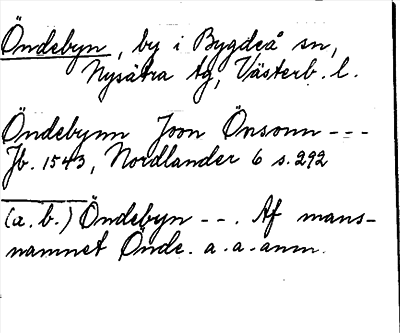 Öndebyn, by i Bygdeå sn,
Nysätra tg, Västerb. l.
Öndebynn Joon Önsonn ---
Jb. 1543, Nordlander 6 s. 292
(a. b.) Öndebyn --. Af mans-
namnet Önde. a. a. anm.